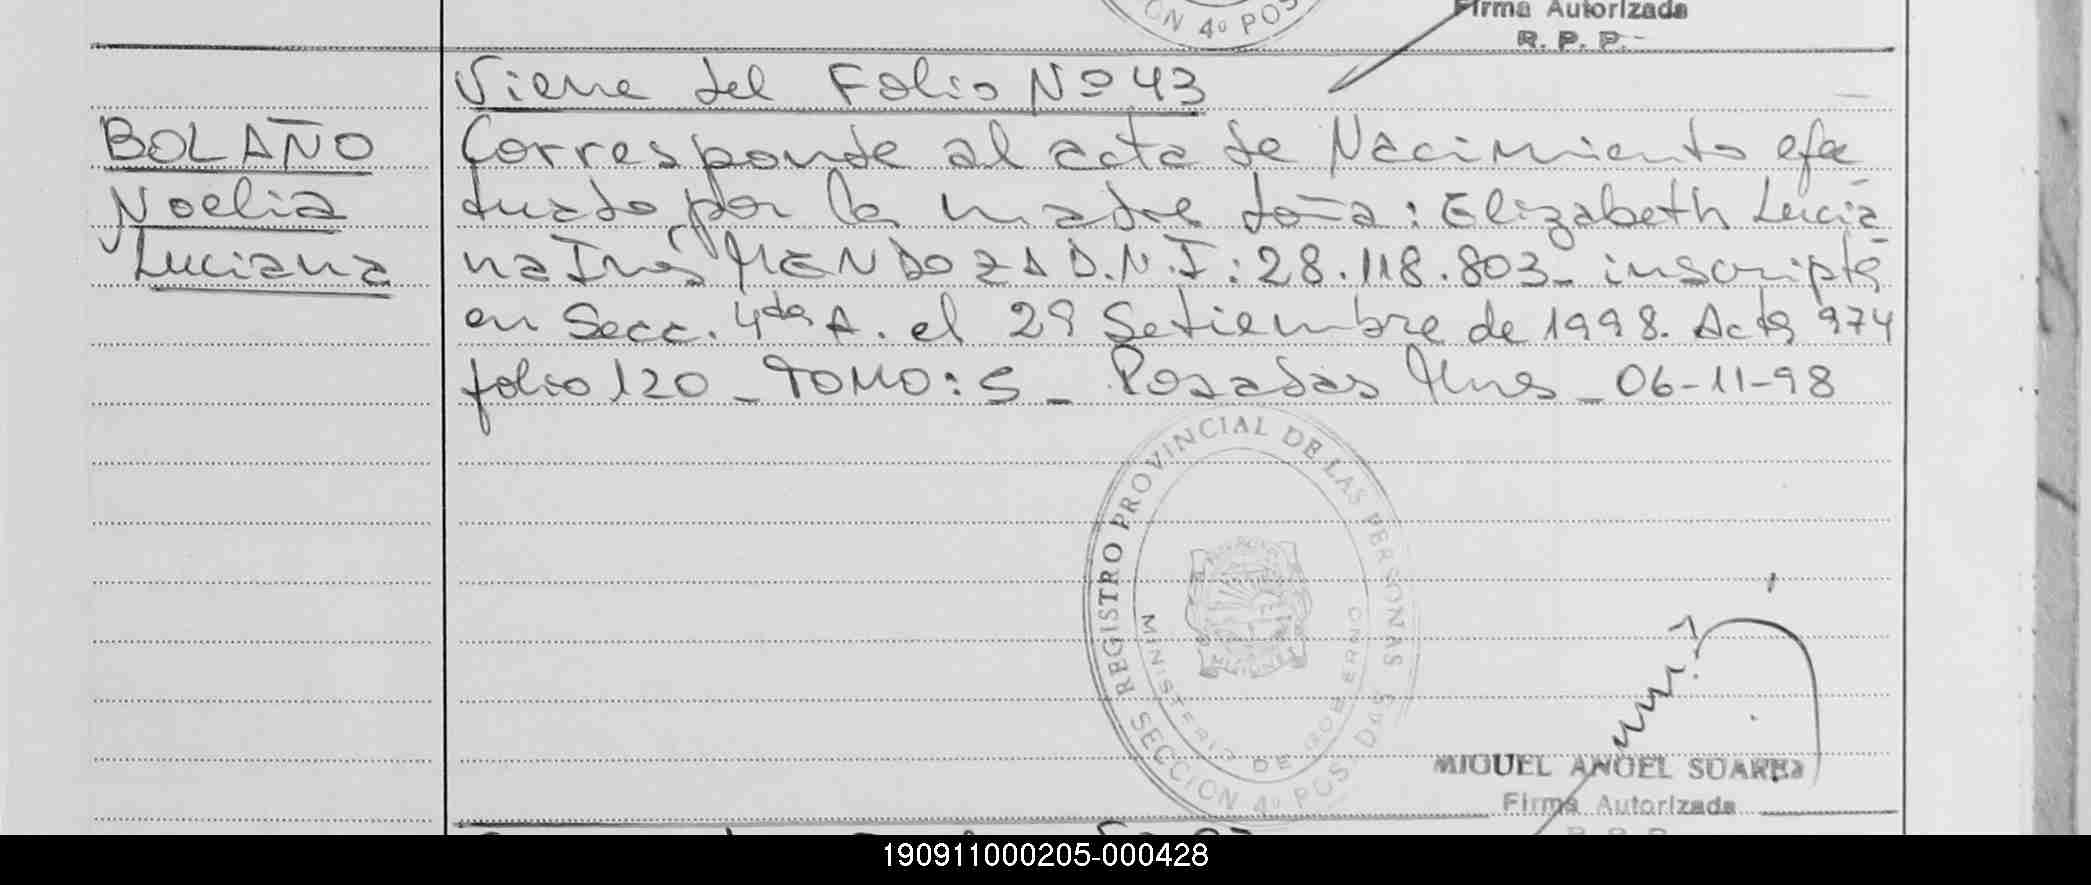 CION 4º POS
Firma Autorizada
R. P. P.
Viene del Folio Nº 43
BOLAÑO
Noelia
Luciana
Corresponde al acta de Nacimiento efec
tuado por la madre doña: Elizabeth Lucia
na Inés MENDOZA D.N.I: 28.118.803_ inscripta
en Secc. 4ta A. el 29 Setiembre de 1998. Acta 974
folio 120 _ TOMO: 5 _ Posadas Mnes _ 06-11-98
REGISTRO PROVINCIAL DE LAS PERSONAS
MINISTERIO DE GOBIERNO
SECCION 4º POSADAS
MIGUEL ANGEL SUAREZ
Firma Autorizada
R. P. P.
190911000205-000428